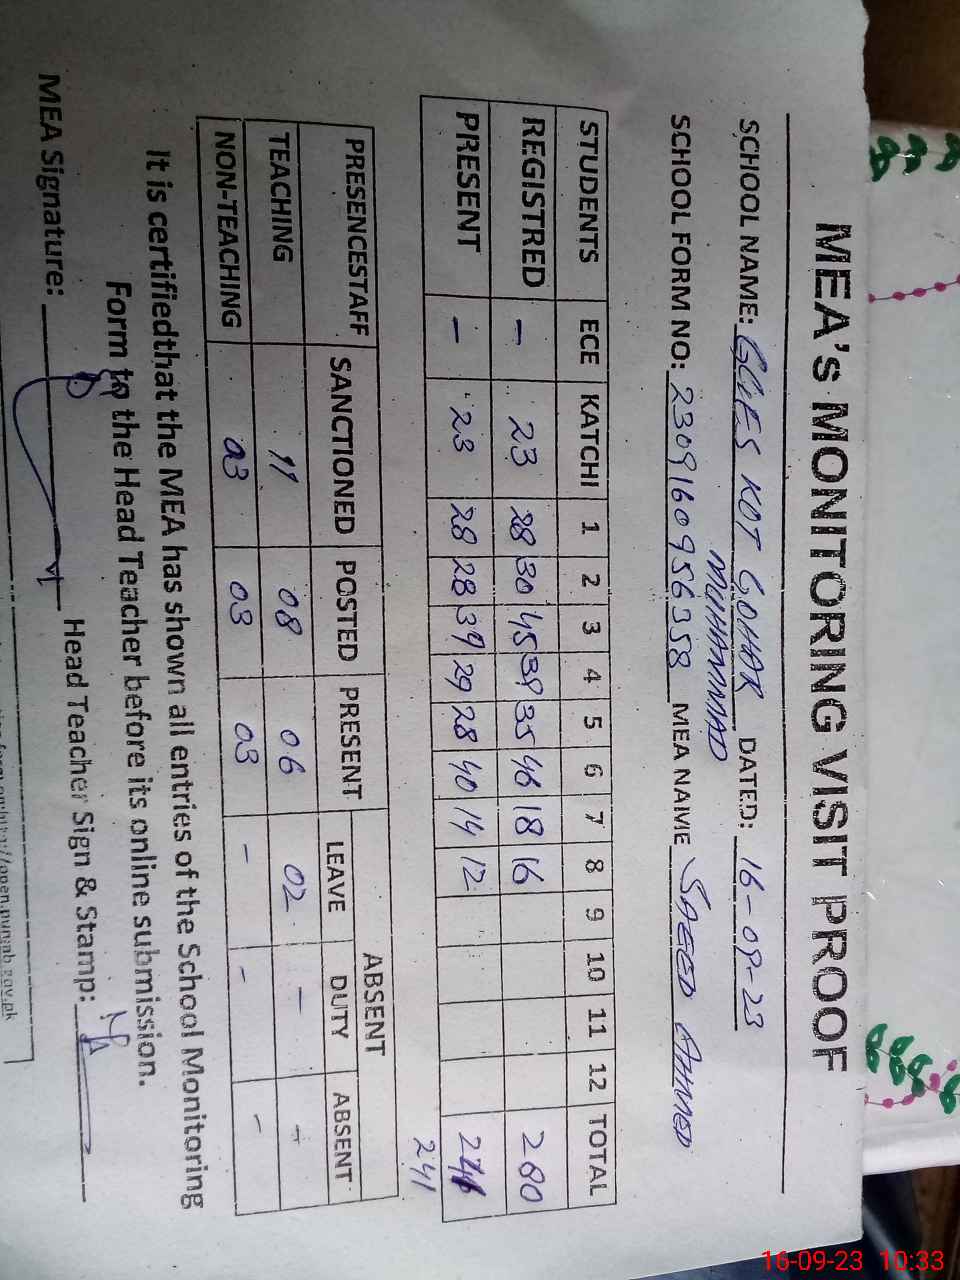 MEA's MONITORING VISIT PROOF
SCHOOL NAME: GGES KOT GOHAR DATED: 16-09-23
MUHAMMAD
SCHOOL FORM NO: 2309160956358 MEA NAME SAEED AHMED
STUDENTS ECE KATCHI 1 2 3 4 5 6 7 8 9 10 11 12 TOTAL
REGISTRED - 23 28 30 45 39 35 46 18 16 280
PRESENT - 23 28 28 39 29 28 40 14 12
241
PRESENCESTAFF SANCTIONED POSTED PRESENT ABSENT
LEAVE DUTY ABSENT
TEACHING 11 08 06 02 - -
NON-TEACHING 03 03 03 - - -
It is certifiedthat the MEA has shown all entries of the School Monitoring
Form to the Head Teacher before its online submission.
MEA Signature: Head Teacher Sign & Stamp:
open.punjab.gov.pk
16-09-23 10:33